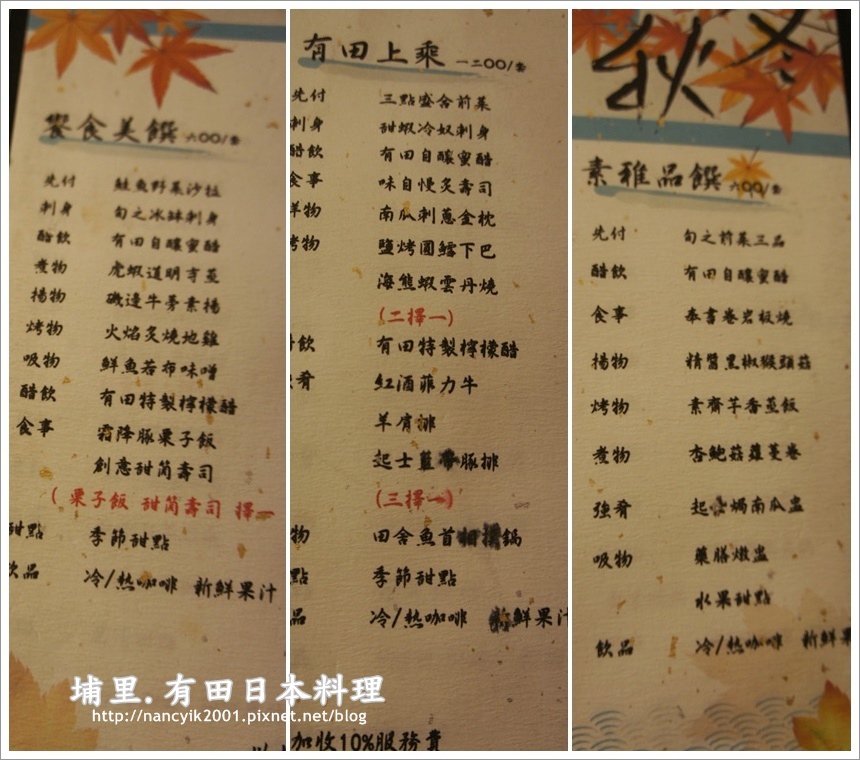 饗食美饌 六00/套
先付 鮭魚野菜沙拉
刺身 旬之冰缽刺身
醋飲 有田自釀蜜醋
煮物 虎蝦道明寺蒸
揚物 磯邊牛蒡素揚
烤物 火焰炙燒地雞
吸物 鮮魚若布味噌
醋飲 有田特製檸檬醋
食事 霜降豚栗子飯
創意甜筒壽司
( 栗子飯 甜筒壽司 擇一
甜點 季節甜點
飲品 冷/熱咖啡 新鮮果汁
有田上乘 一二00/套
先付 三點盛合前菜
刺身 甜蝦冷奴刺身
醋飲 有田自釀蜜醋
食事 味自慢炙壽司
物 南瓜刺蔥金枕
烤物 鹽烤圓鱈下巴
海熊蝦雲丹燒
(二擇一)
飲 有田特製檸檬醋
肴 紅酒菲力牛
羊肩排
起士藍帶豚排
(三擇一)
物 田舍魚首鍋
點 季節甜點
品 冷/熱咖啡 新鮮果汁
加收10%服務費
秋冬
素雅品饌 六00/套
先付 旬之前菜三品
醋飲 有田自釀蜜醋
食事 奉書卷岩板燒
揚物 精醬黑椒猴頭菇
烤物 素齊芋香蒸飯
煮物 杏鮑菇蘿蔓卷
強肴 起士焗南瓜盅
吸物 藥膳燉盅
水果甜點
飲品 冷/熱咖啡 新鮮果
埔里.有田日本料理
http://nancyik2001.pixnet.net/blog